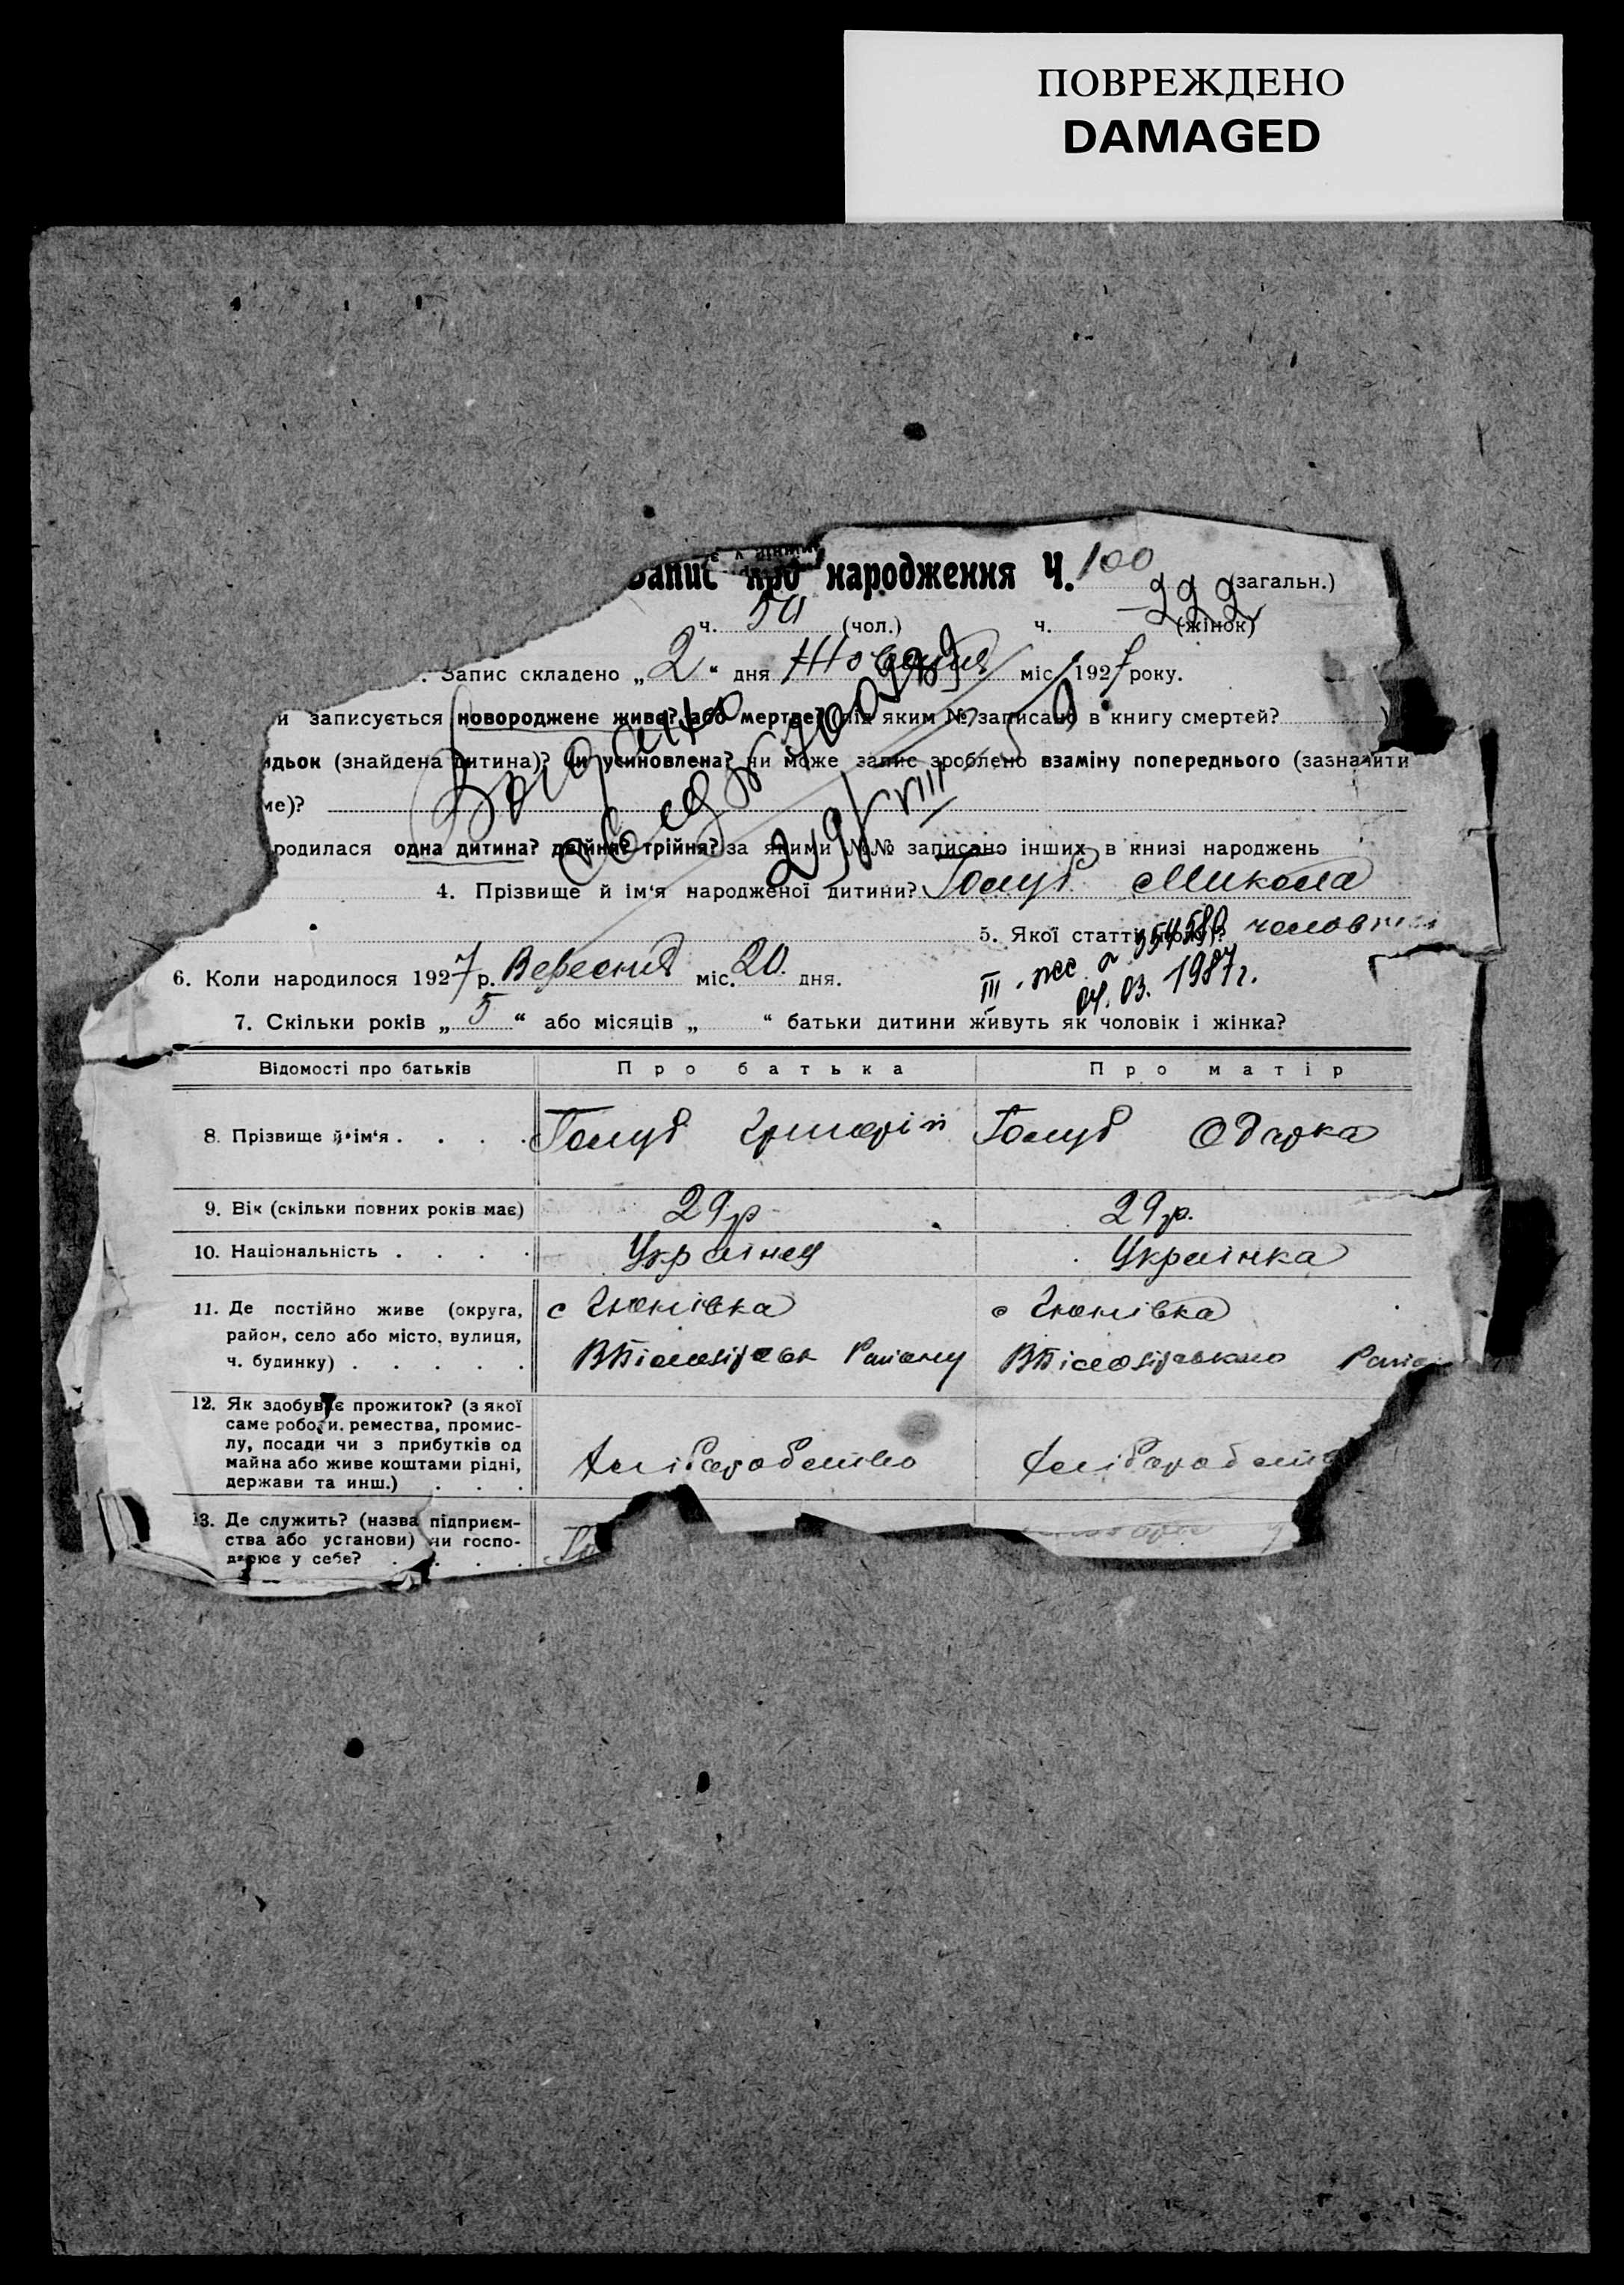 ПОВРЕЖДЕНО
DAMAGED
Запис про народження Ч. 100 (загальн.)
ч. (чол.) ч. (жінок)
222
Запис складено „2“ дня Жовтня міс. 1927 року.
и записується новороджене живе? або мертве? під яким № записано в книгу смертей?
идьок (знайдена дитина)? чи усиновлена? чи може запис зроблено взаміну попереднього (зазначити
ме)?
родилася одна дитина? двійня? трійня? за якими №№ записано інших в книзі народжень
4. Прізвище й ім‘я народженої дитини? Голуб Микола
5. Якої статті
6. Коли народилося 1927 р. Вересня міс. 20 дня.
04. 03. 1987г.
7. Скільки років „5“ або місяців „ “ батьки дитини живуть як чоловік і жінка?
Відомості про батьків Про батька Про матір
8. Прізвище й ім‘я . . . . Голуб Григорій Голуб Одарка
9. Вік (скільки повних років має) 29 р 29 р.
10. Національність . . . . Українец Українка
11. Де постійно живе (округа, с с
район, село або місто, вулиця,
ч. будинку) . . . . . Району
12. Як здобуває прожиток? (з якої
саме роботи, ремества, промис-
лу, посади чи з прибутків од
майна або живе коштами рідні, Хліборобство
держави та инш.) . . .
13. Де служить? (назва підприєм-
ства або установи) чи госпо-
дарює у себе? . . . .